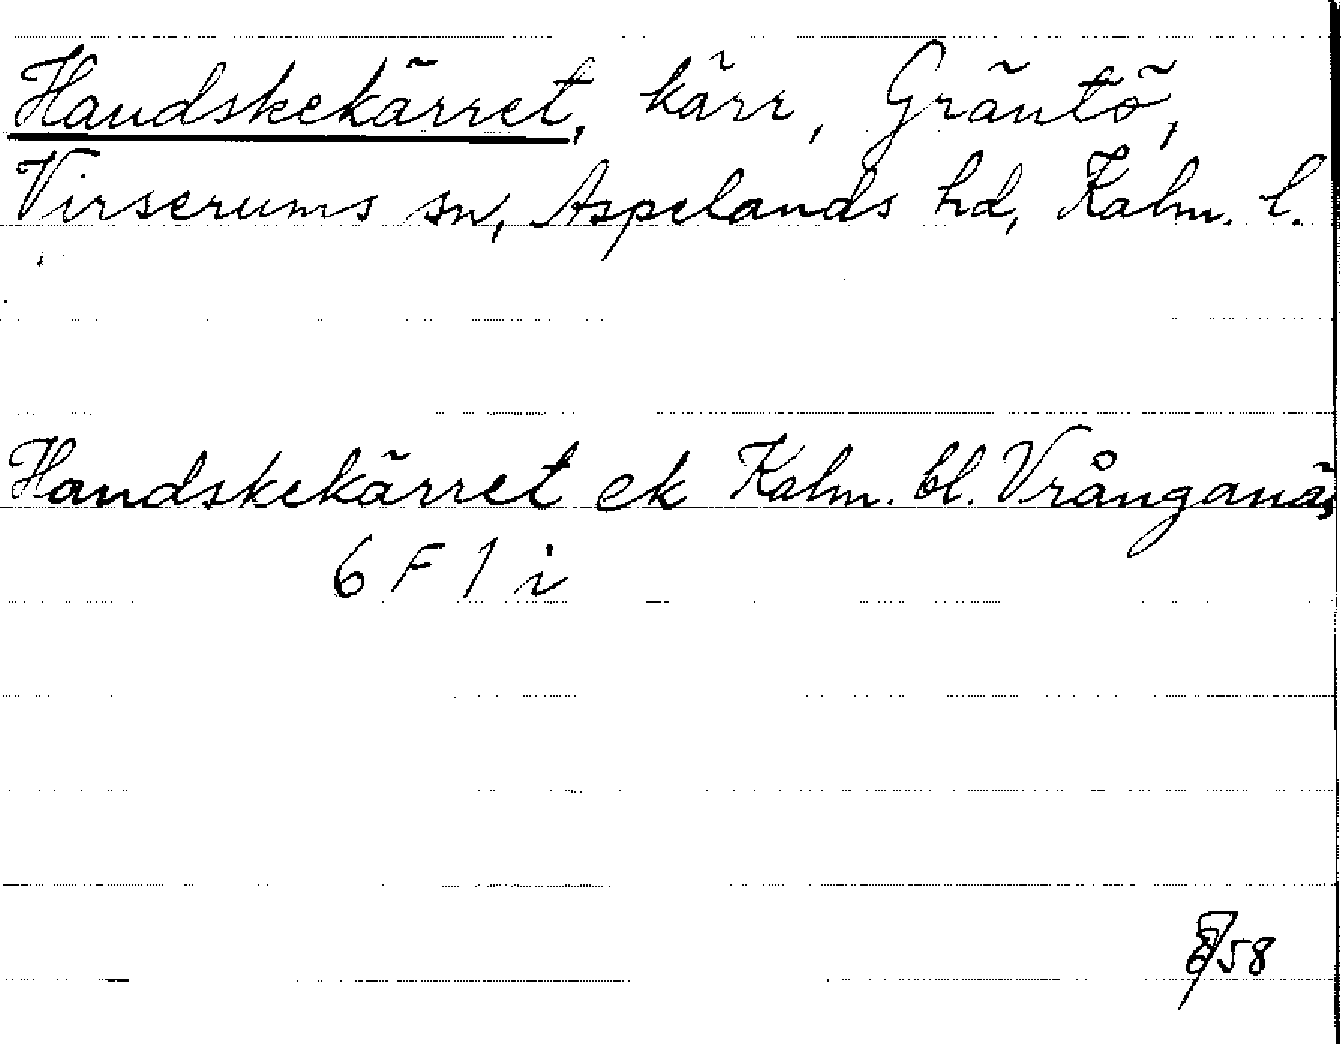 Handskekärret, kärr, Gräntö,
Virserums sn, Aspelands hd, Kalm. l.
Handskekärret ek Kalm. bl. Vrånganäs
6 F 1 i